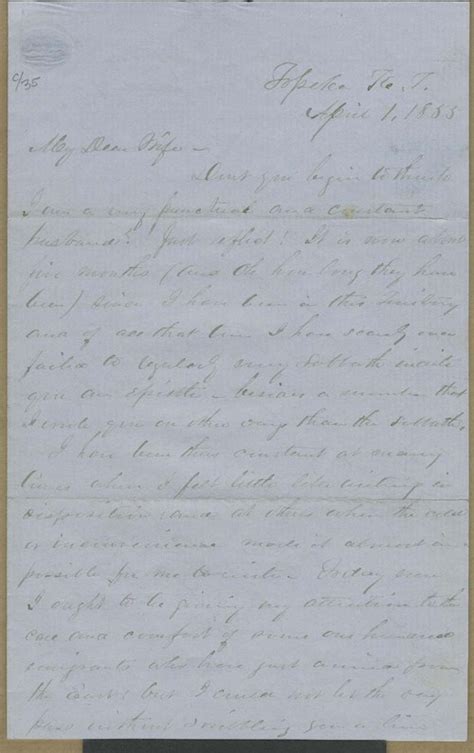 C/35
Topeka K. T.
April 1, 1855
My Dear Wife –
Don't you begin to think
I am a very punctual and constant
husband? Just reflect! It is now about
five months (and Oh how long they have
been) since I have been in this territory
and of all that time I have scarcely ever
failed to regularly every Sabbath write
you an epistle – besides a number that
I wrote you on other days than the Sabbath.
I have been thus constant at many
times when I felt little like writing in
disposition and at others when the cold
or inconvenience made it almost im-
possible for me to write. Today even
I ought to be giving my attention to the
care and comfort of some one hundred
emigrants who have just arrived from
the East but I could not let the day
pass without scribbling you a line